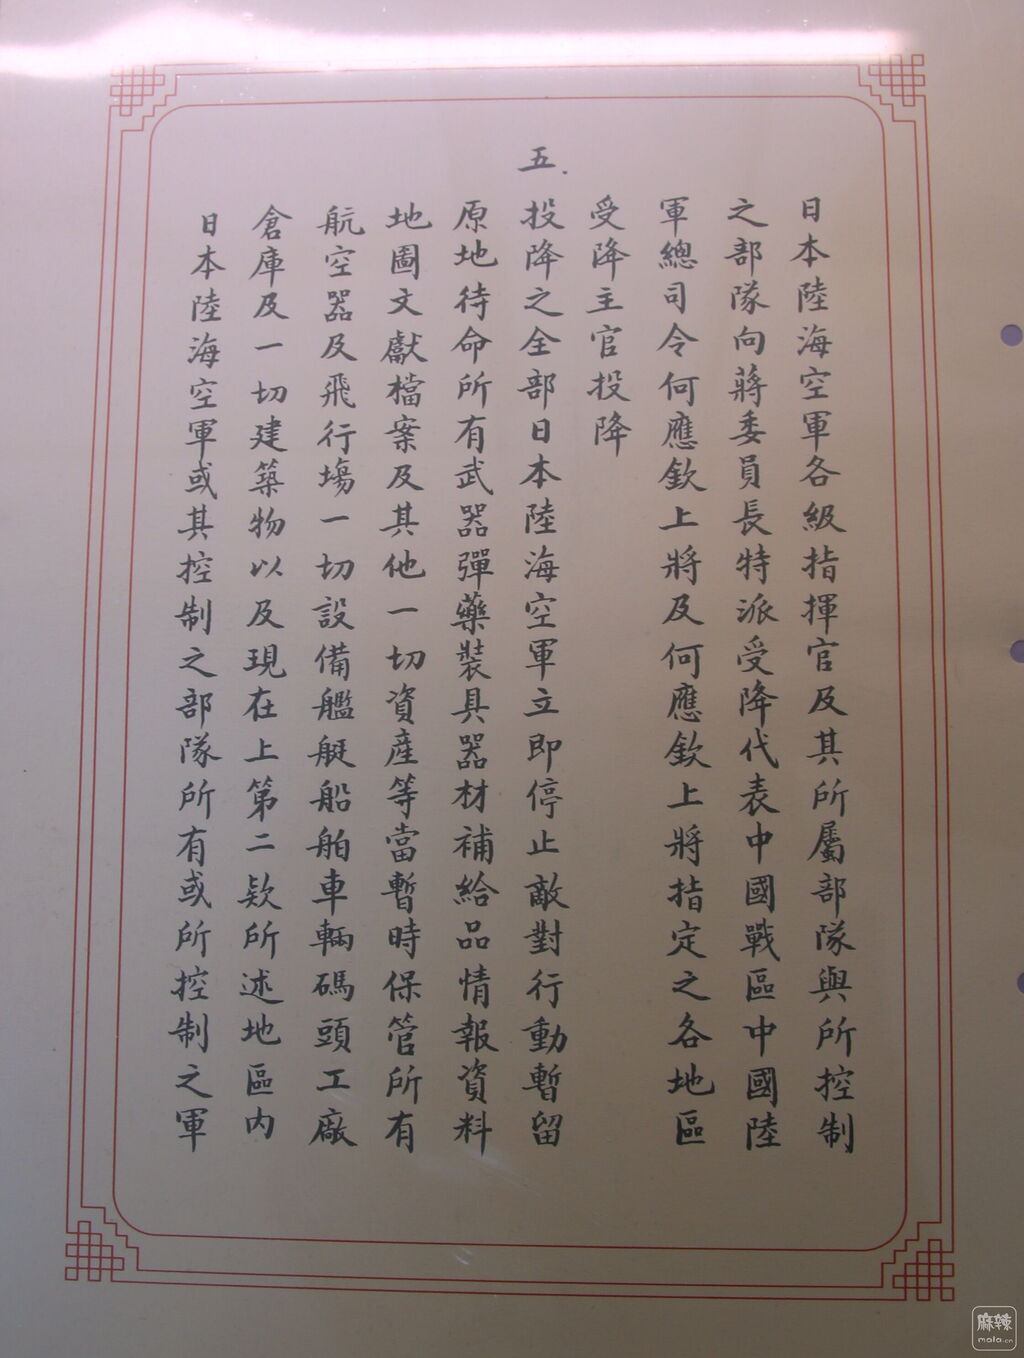 日本陸海空軍各級指揮官及其所屬部隊與所控制
之部隊向蔣委員長特派受降代表中國戰區中國陸
軍總司令何應欽上將及何應欽上將指定之各地區
受降主官投降
五.
投降之全部日本陸海空軍立即停止敵對行動暫留
原地待命所有武器彈藥裝具器材補給品情報資料
地圖文獻檔案及其他一切資產等當暫時保管所有
航空器及飛行場一切設備艦艇船舶車輛碼頭工廠
倉庫及一切建築物以及現在上第二款所述地區內
日本陸海空軍或其控制之部隊所有或所控制之軍
麻辣
mala.cn